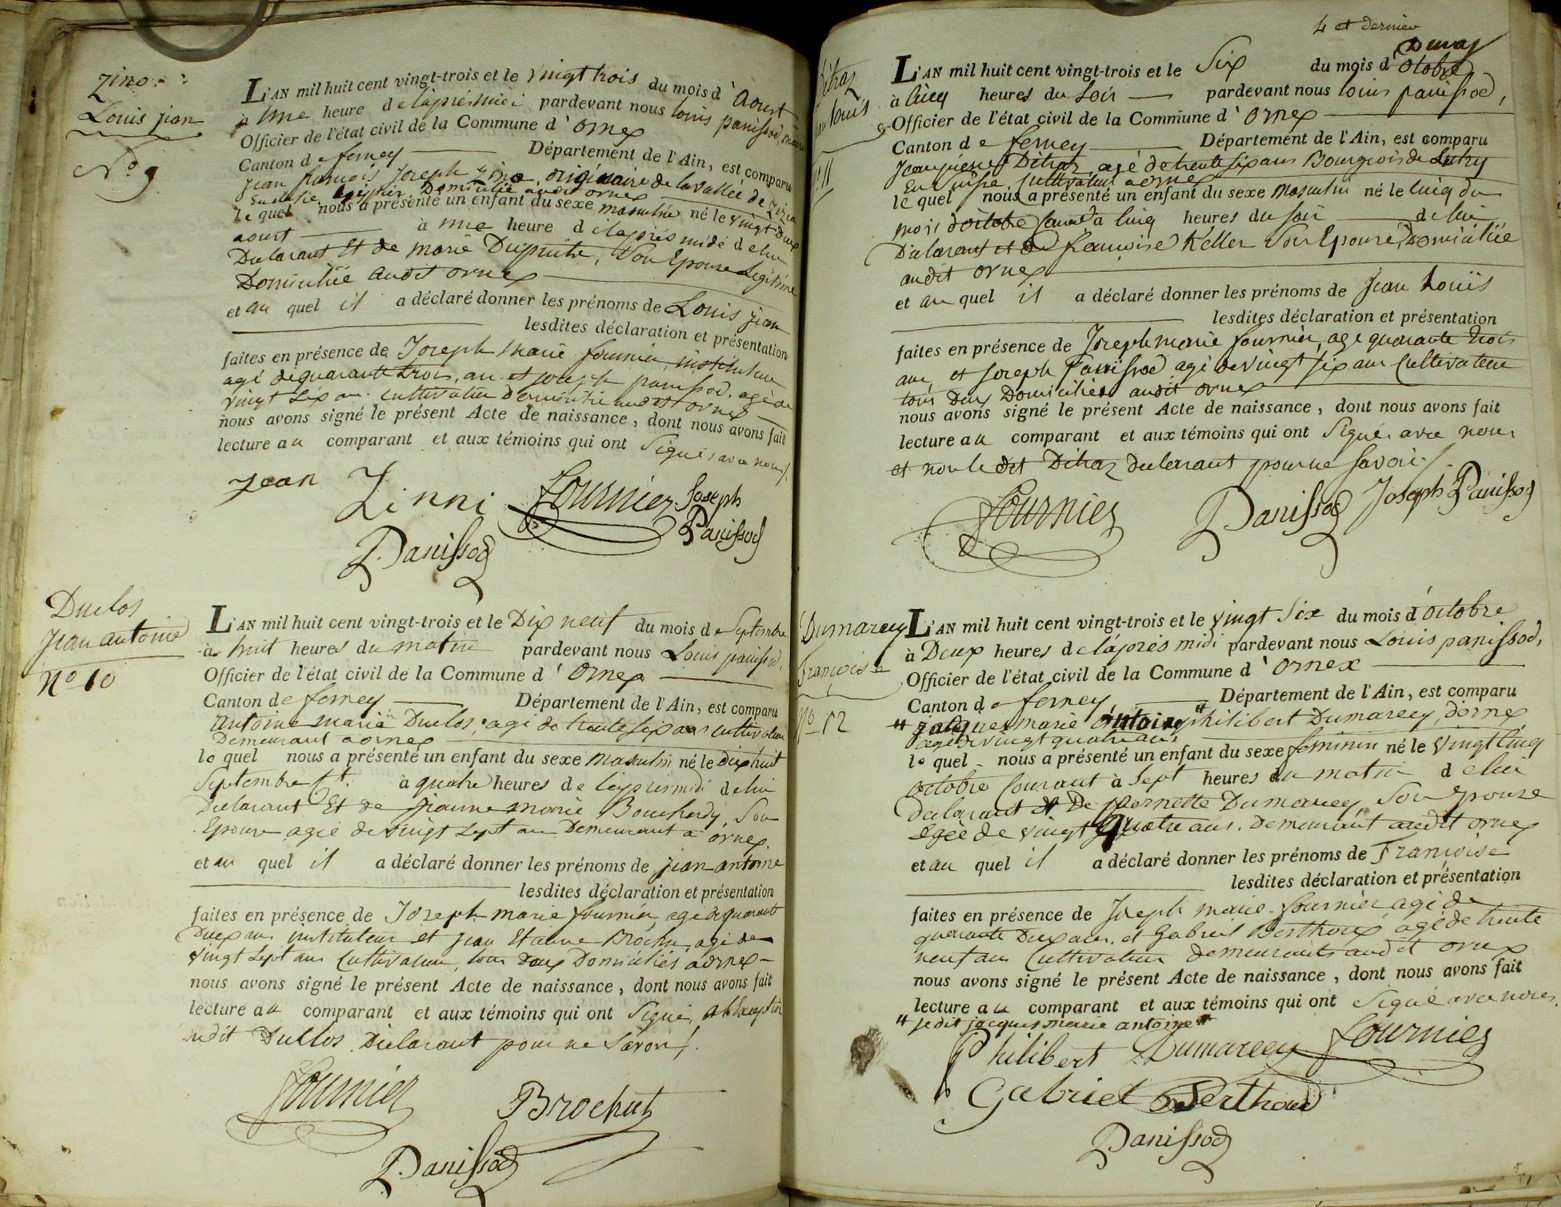 Zino
Louis jean
N.o 9
L'AN mil huit cent vingt-trois et le vingt trois du mois d'Aoust
à une heure de laprésmidi pardevant nous louis panissod, maire
Officier de l'état civil de la Commune d'ornex
Canton de ferney Département de l'Ain, est comparu
jean françois Joseph Zino originaire de la vallée de
Domicilié audit ornex
le quel nous a présenté un enfant du sexe masculin né le vingt deux
aoust à une heure de laprés midi de lui
Declarant Et de marie Son Epouse Legitime
Domiciliée audit ornex
et au quel il a déclaré donner les prénoms de Louis jean
lesdites déclaration et présentation
faites en présence de Joseph Marie fournier, instituteur
agé de quarante trois, ans et joseph panissod, agé de
vingt six ans cultivateur domicilié audit ornex
nous avons signé le présent Acte de naissance, dont nous avons fait
lecture au comparant et aux témoins qui ont Signé avec nous
jean Zinni Fournier Joseph
Panissod
Panissod
Duclos
jean antoine
N.o 10
L'AN mil huit cent vingt-trois et le Dix neuf du mois de Septembre
à huit heures du matin pardevant nous Louis panissod,
Officier de l'état civil de la Commune d'ornex
Canton de ferney Département de l'Ain, est comparu
Antoine marie Duclos, agé de trente six ans cultivateur
Demeurant a ornex
le quel nous a présenté un enfant du sexe masculin né le dixhuit
Septembre Ct. à quatre heures de leprésmidi de lui
Declarant Et de jeanne marie Bouchardy, Son
Epouse agée de vingt sept ans Demeurant a ornex.
et au quel il a déclaré donner les prénoms de jean antoine
lesdites déclaration et présentation
faites en présence de Joseph marie fournier agé de quarante
Deux ans instituteur et jean Etienne Brochu, agé de
vingt sept ans cultivateur, tous deux Domiciliés a ornex
nous avons signé le présent Acte de naissance, dont nous avons fait
lecture au comparant et aux témoins qui ont Signé, a l'exeption
dudit Duclos Declarant pour ne Savoir
Fournier Brochut
Panissod
4 et dernier
Dihaz
jean louis
N.o 11
L'AN mil huit cent vingt-trois et le Six du mois d'octobre
à cinq heures du soir pardevant nous louis panissod,
Officier de l'état civil de la Commune d'ornex
Canton de ferney Département de l'Ain, est comparu
Jean pierre Dihaz agé de trente six ans Bourgeois de Lutry
En Suisse, cultivateur a ornex
le quel nous a présenté un enfant du sexe masculin né le cinq du
mois d'octobre à cinq heures du soir de lui
Declarant et de françoise Keller Son Epouse, Domiciliée
audit ornex
et au quel il a déclaré donner les prénoms de jean Louïs
lesdites déclaration et présentation
faites en présence de Joseph marie fournier, agé quarante trois
ans, et joseph Panissod agé de vingt six ans Cultivateur
tous Deux Domiciliés audit ornex
nous avons signé le présent Acte de naissance, dont nous avons fait
lecture au comparant et aux témoins qui ont Signé avec nous
et non le dit Dihaz declarant pour ne savoir
Fournier Panissod Joseph Panissod
Dumarecy
françoise
N.o 12
L'AN mil huit cent vingt-trois et le vingt Six du mois d'octobre
à Deux heures de laprés midi pardevant nous Louis panissod,
Officier de l'état civil de la Commune d'ornex
Canton de ferney Département de l'Ain, est comparu
jacques marie Antoine philibert Dumarecy, d'ornex
agé de vingt quatre ans
le quel nous a présenté un enfant du sexe feminin né le vingt cinq
octobre Courant à sept heures du matin de lui
declarant et De pernette Dumarecy, Son epouse
agée de vingt quatre ans. Demeurant audit ornex
et au quel il a déclaré donner les prénoms de Françoise
lesdites déclaration et présentation
faites en présence de Joseph marie fournier agé de
quarante Deux ans. et Gabriel Berthoud, agé de trente
neuf ans Cultivateur demeurants audit ornex
nous avons signé le présent Acte de naissance, dont nous avons fait
lecture au comparant et aux témoins qui ont Signé avec nous.
" je dit jacques marie antoine "
Philibert Dumarecy Fournier
Gabriel Berthoud
Panissod